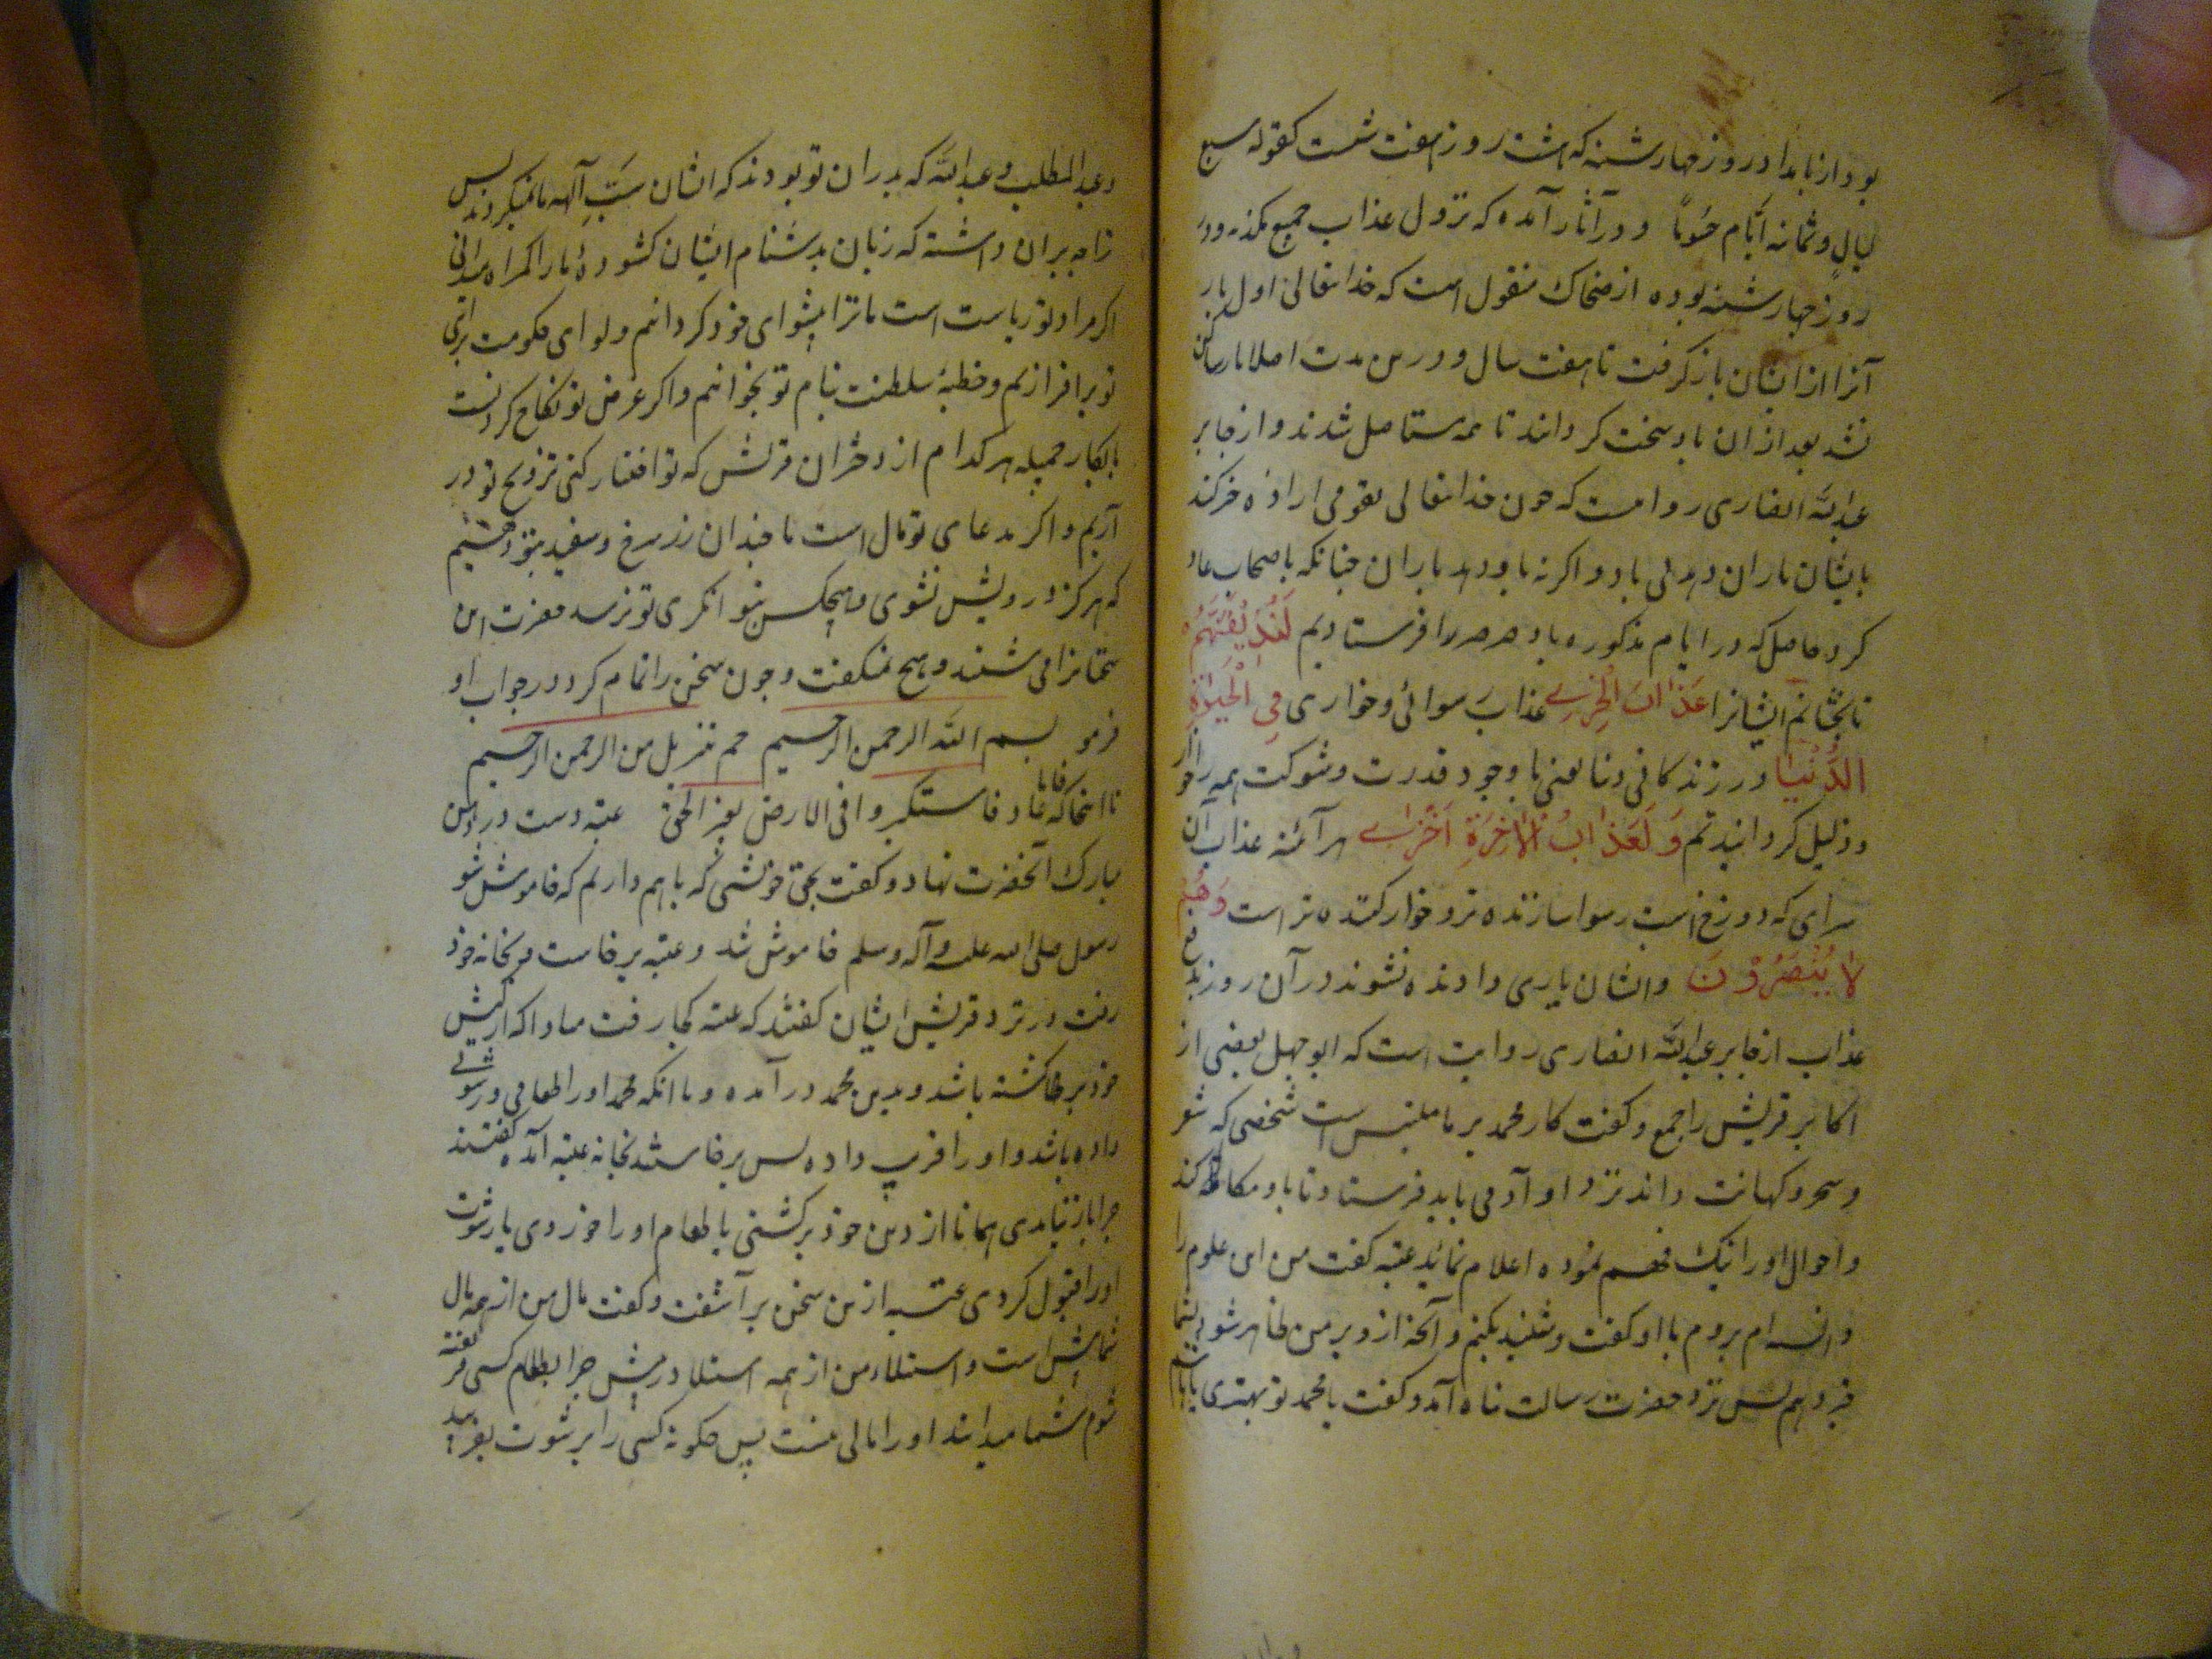 بود از بامداد روز چهارشنبه که هشت روز و هفت شبست کقوله سبع
لیالٍ و ثمانیه ایّام حسوماً و در آثار آمده که نزول عذاب جمیع مکذبه در
روز چهارشنبه بوده از ضحاک منقول است که خدایتعالی اول بار
آنرا از ایشان باز گرفت تا هفت سال و درین مدت اصلا باران
نشد بعد از آن باد سخت کردانید تا همه مستاصل شدند و از جابر
عبدالله انصاری روایت که چون خدایتعالی بقومی اراده خیر کند
بایشان باران دهد بی باد و اگر نه باد دهد بی باران چنانکه باصحاب عاد
کرد حاصل که در ایام مذکوره باد صرصر را فرستادیم لنذیقنهم
تا بچشانیم ایشانرا عذاب الخزی عذاب رسوائی و خواری فی الحیوة
الدنیا در زندکانی دنیا یعنی با وجود قدرت و شوکت همه را خوار
و ذلیل کردانیدیم و لعذاب الاخرة اخزی هر آئنه عذاب آن
سرای که دوزخ است رسوا سازنده تر و خوار کننده تر است و هم
لا ینصرون و ایشان یاری داده نشوند در آن روز بدفع
عذاب از جابر عبدالله انصاری روایت است که ابو جهل بعضی از
اکابر قریش را جمع و کفت کار محمد بر ما ملتبس است شخصی که شعر
و سحر و کهانت داند نزد او آدمی باید فرستاد تا با او مکالمه کند
و احوال او را نیک فهم نموده اعلام نماید عتبه کفت من این علوم را
دانسته ام بروم با او کفت و شنید بکنم و آنچه از و بر من ظاهر شود بشما
خبر دهم پس نزد حضرت رسالت پناه آمد و کفت یا محمد تو بهتری یا هاشم
و عبدالمطلب و عبدالله که پدران تو بودند که ایشان سبّ آلهه ما نمیکردند پس
ترا چه بران داشته که زبان بدشنام ایشان کشوده ما را کمراه میدانی
اکر مراد تو ریاست است ما ترا پیشوای خود کردانیم و لوای حکومت برای
تو بر افرازیم و خطبه سلطنت بنام تو بخوانیم و اکر غرض تو نکاح کردنست
بابکار جمیله هر کدام از دختران قریش که تو اختیار کنی تزویج تو در
آریم و اکر مدعای تو مال است ما چندان زر سرخ و سفید بتو بخشیم
که هرکز درویش نشوی و هیچکس بتوانکری تو نرسد حضرت این
سخنانرا می شنید و هیچ نمیکفت و چون سخن را تمام کرد در جواب او
فرمود بسم الله الرحمن الرحیم حم تنزیل من الرحمن الرحیم
تا آنجا که فاما عاد فاستکبروا فی الارض بغیر الحق عتبه دست در دهن
مبارک آنحضرت نهاد و کفت بحق خویشی که با هم داریم که خاموش شو
رسول صلی الله علیه و آله و سلم خاموش شد و عتبه برخاست و بخانه خود
رفت و نزد قریش ایشان کفتند که عتبه کجا رفت مبادا که از کیش
خود برطا کشته باشد و بدین محمد درآمده و یا انکه محمد او را طعامی و رشوتی
داده باشد و او را فریب داده پس برخاستند بخانه عتبه آمده کفتند
چرا باز نیامدی همانا از دین خود بر کشتی یا طعام او را خوردی یا رشوت
او را قبول کردی عتبه ازین سخن بر آشفت و کفت مال من از همه مال
شما بیش است و استیلاء من از همه استیلا در پیش چرا بطعام کسی فریفته
شوم شما میدانید او را مالی نیست پس چکونه کسی را برشوت بفریبد